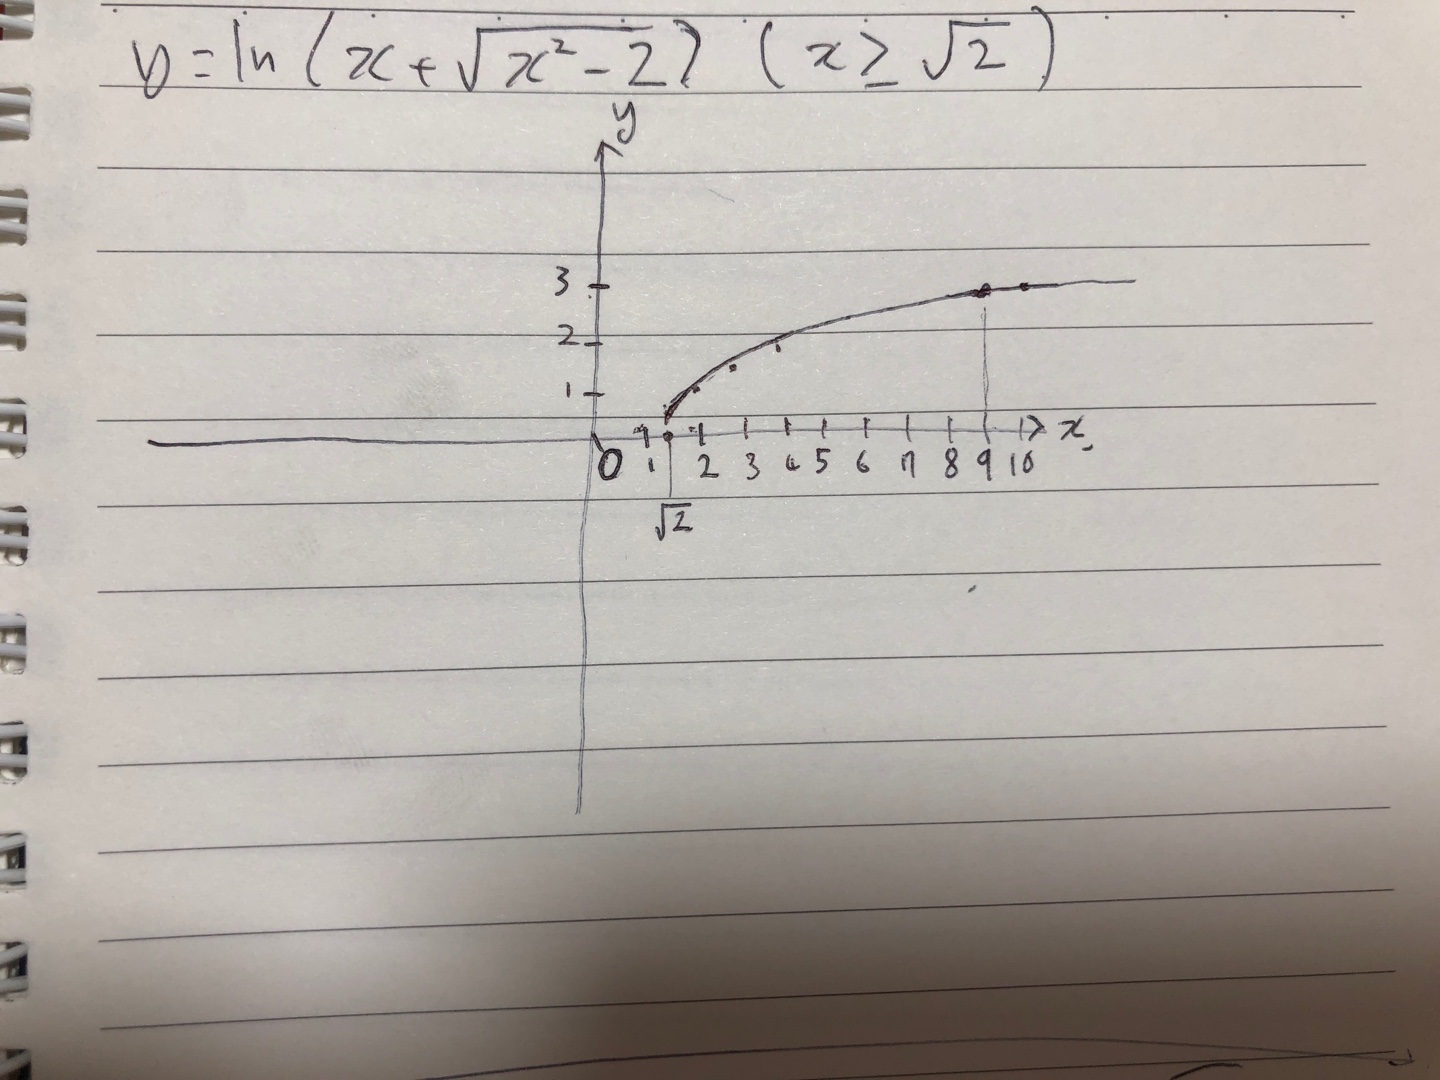 y = ln(x + √x² - 2) (x ≥ √2)
y
3
2
1
x
0 1 2 3 4 5 6 7 8 9 10
√2